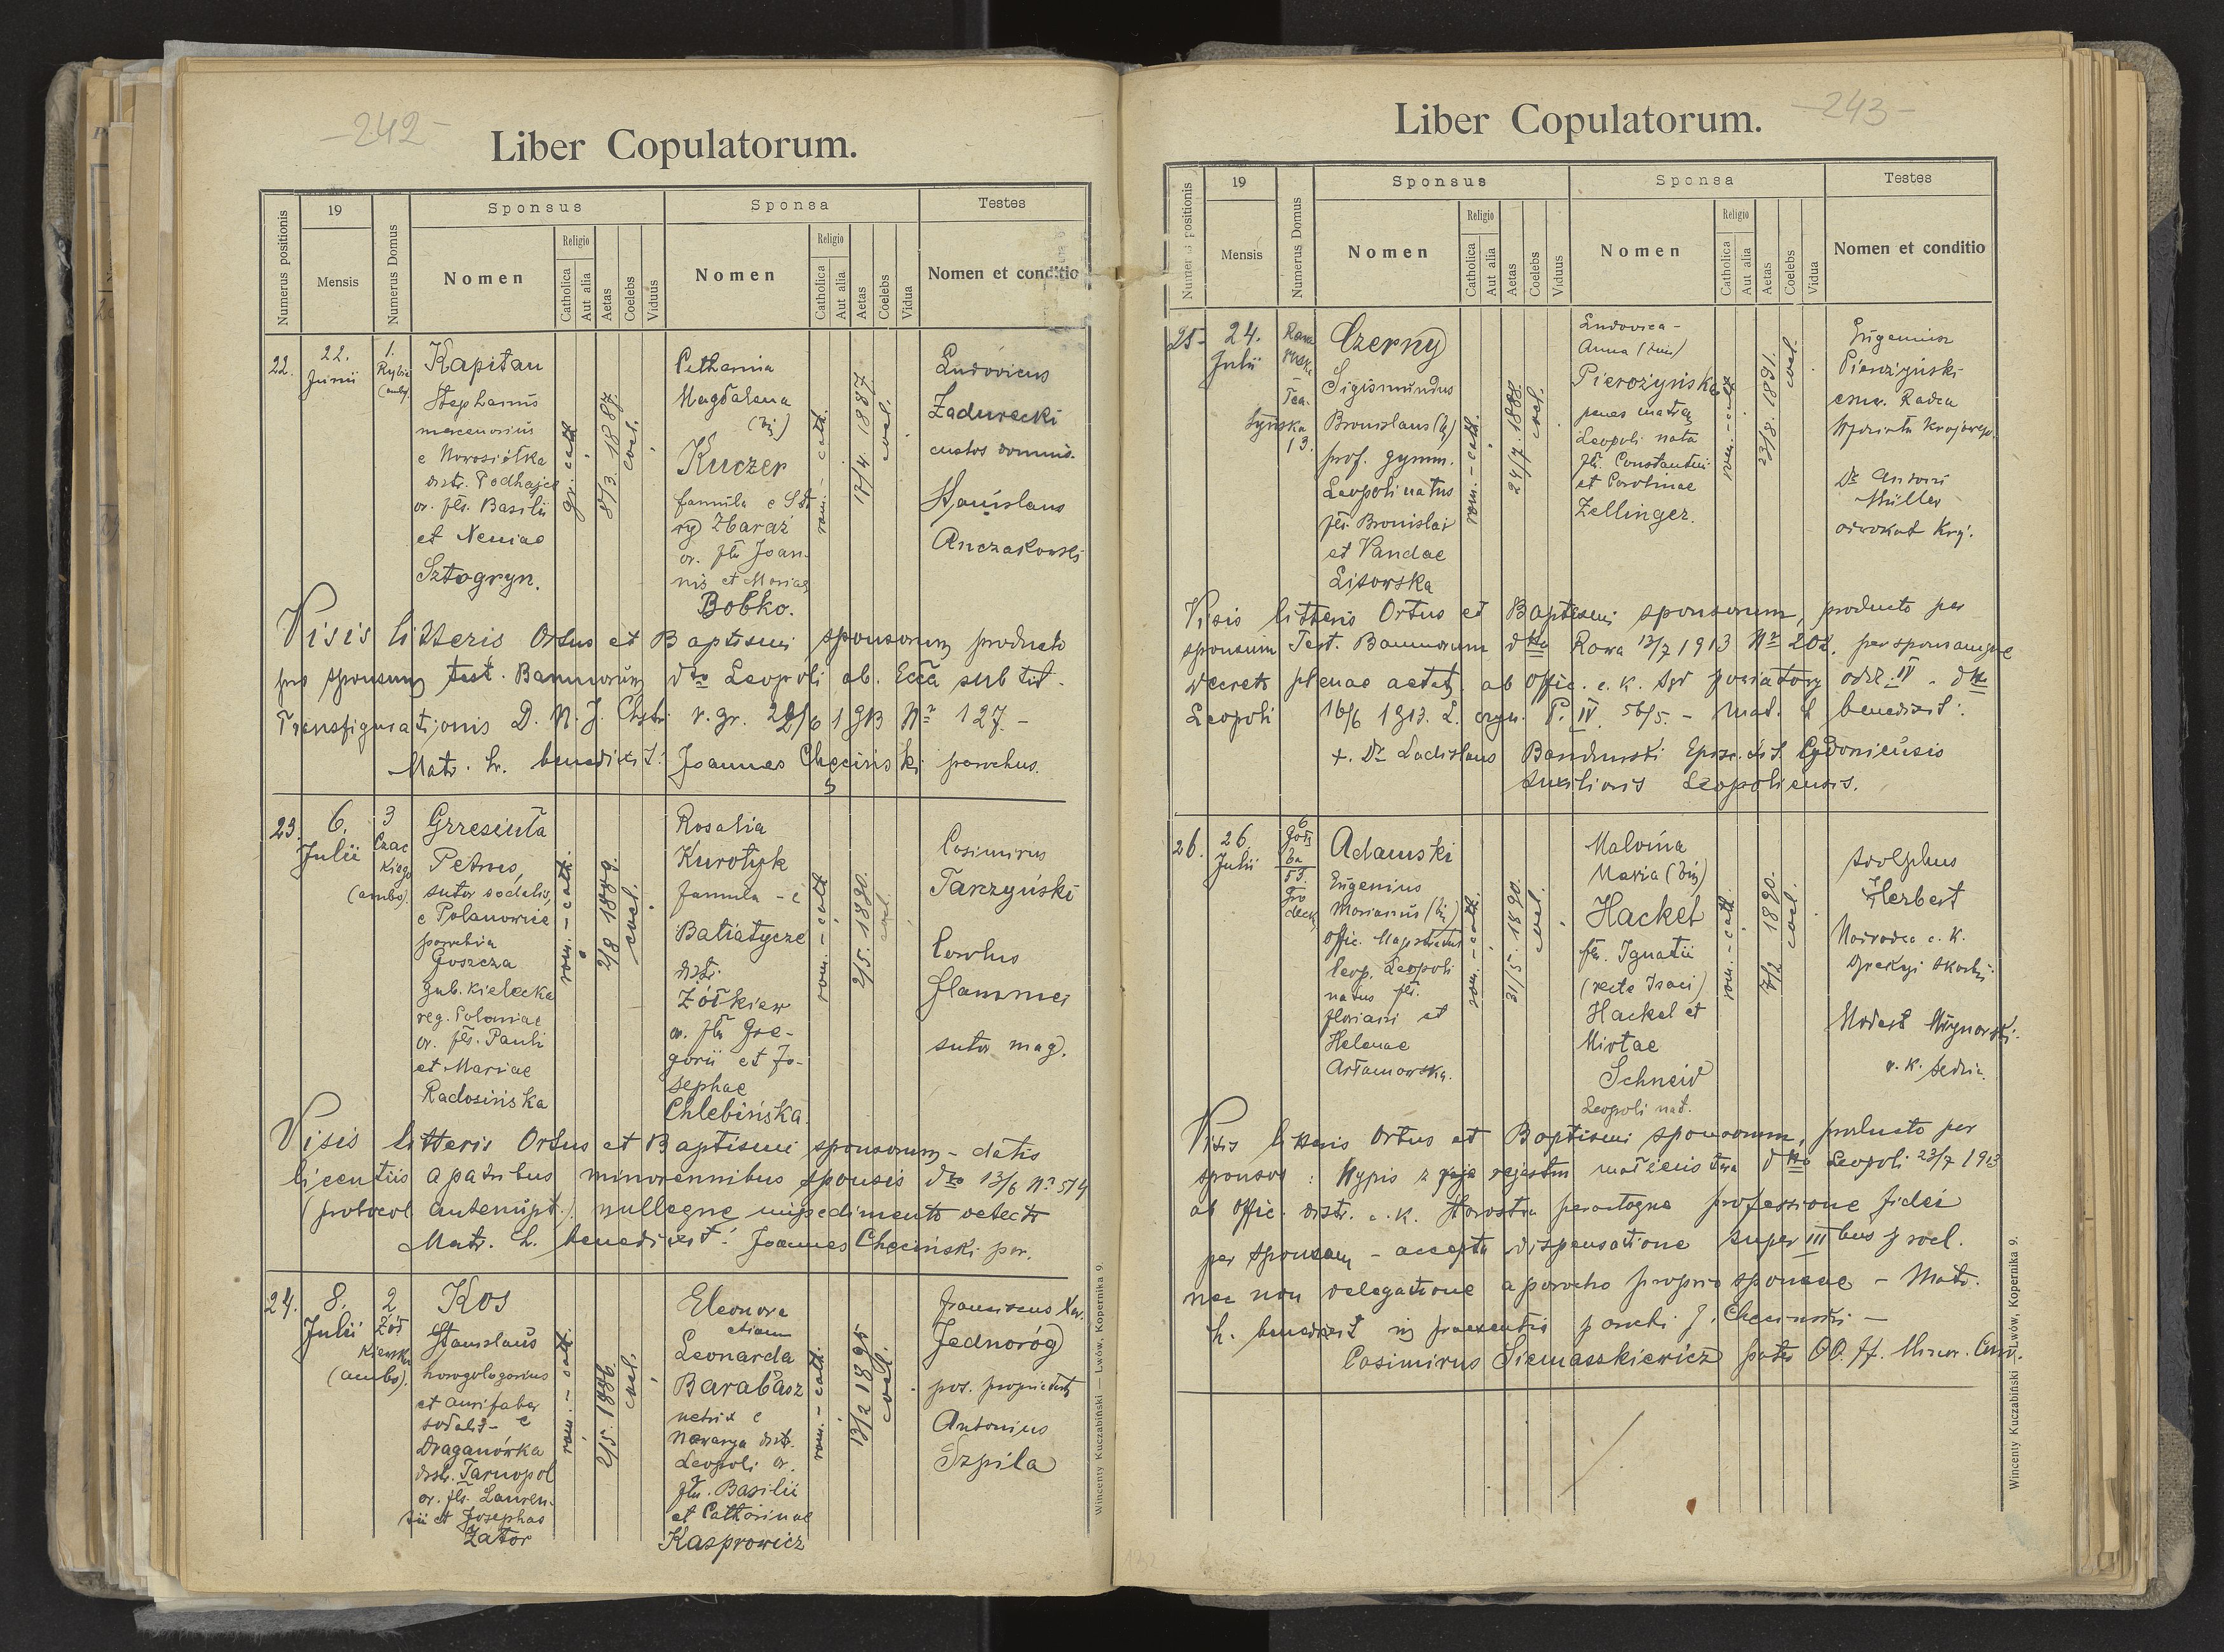 -242-
Liber Copulatorum.
Numerus positionis
19
Mensis
Numerus Domus
Sponsus
Nomen
Religio
Catholica
Aut alia
Aetas
Coelebs
Viduus
Sponsa
Nomen
Religio
Catholica
Aut alia
Aetas
Coelebs
Vidua
Testes
Nomen et conditio
22.
22.
Junii
1.
Rybia
(ambo)
Kapitan
Stephanus
mercenarius
e Nowosiółka
distr. Podhajce
or. fls. Basilii
et Xeniae
Sztogryn.
gr. cath.
8/3. 1887.
coel.
Catharina
Magdalena
(bin)
Kuczer
famula e Sta
ry Zbaraż
or. fla Joan-
nis et Mariae
Bobko.
rom. - cath.
17/4. 1887.
coel.
Ludovicus
Zadurecki
custos domus.
Stanislaus
Anczakowski
Visis litteris Ortus et Baptismi sponsorum producto
pro sponsum test. Bannorum dto Leopoli ab. Ecca sub tit.
Transfigurationis D. N. J. Chstr. r. gr. 1913 Nr 127 -
Matr. h. benedixit: Joannes Chęciński parochus.
23.
6.
Julii
3
Czac
kiego
(ambo).
Grzesiuła
Petrus,
sutor sodalis,
e Polanowice
parochia
Goszcza
gub. kielecka
reg. Poloniae
or. fls. Pauli
et Mariae
Radosińska
rom. - cath.
2/8 1889.
coel.
Rosalia
Kurotyk
famula - e
Batiatycze
distr.
Żółkiew
or. fla Gre-
gorii et Jo-
sephae
Chlebińska.
rom. - cath
2/5. 1890.
coel.
Casimirus
Tarczyński
Carolus
Flammer
sutor mag.
Visis litteris Ortus et Baptismi sponsorum - datis
licentiis a patribus minorennibus sponsis dto 13/6 Nr 514
(protocol. antenupt.) nulloque impedimento detecto
Matr. h. benedixit: Joannes Chęciński par.
24.
8.
Julii
2
Żół
kiewska
(ambo).
Kos
Stanislaus
horologarius
et aurifaber
sodalis - e
Draganówka
distr. Tarnopol
or. fls. Lauren-
tii et Josephae
Zator
rom. - cath.
2/5. 1886.
coel.
Eleonora
etiam
Leonarda
Barabasz
netrix e
Nawarya distr.
Leopoli or.
fla. Basilii
et Catharinae
Kasprowicz
rom. - cath.
13/2 1895
coel.
Franciscus Xav.
Jednoróg
pos. propriedatis
Antonius
Szpila
Wincenty Kuczabiński — Lwów, Kopernika 9.
-243-
Liber Copulatorum.
Numerus positionis
19
Mensis
Numerus Domus
Sponsus
Nomen
Religio
Catholica
Aut alia
Aetas
Coelebs
Viduus
Sponsa
Nomen
Religio
Catholica
Aut alia
Aetas
Coelebs
Vidua
Testes
Nomen et conditio
25.
24.
Julii
Rawa
ruska
-
Tea.
tyńska
13.
Czerny
Sigismundus
Bronislaus (b.)
prof. gymn.
Leopoli natus
fls. Bronislai
et Vandae
Lisowska
rom. - cath.
24/7. 1888.
coel.
Ludovica -
Anna (bin)
Pierożyńska
penes matrem
Leopoli nata
fla. Constantini
et Carolinae
Zellinger.
rom. - cath
23/8. 1891.
coel.
Eugenius
Pierożyński
emer. Radca
Wydziału krajowego.
Dr Antoni
Müller
adwokat kraj.
Visis litteris Ortus et Baptismi sponsorum, producto per
sponsum Test. Bannorum dto Rawa 13/7 1913 Nr 202. per sponsamque
decreto plenae aetatis ab Offic. c. k. Sąd powiatowy odz. IV. dto
Leopoli 16/6 1913. L. czyn. P. IV. 56/5. - Mat. h benedixit:
+. Dr Ladislaus Bandurski Episc. tit. Cydoniensis
Auxiliaris Leopoliensis.
26.
26.
Julii
6
Gołę
ba
53.
Gro
deck
Adamski
Eugenius
Marianus (bin)
offic. Magistratus
leop. Leopoli
natus fls.
Floriani et
Helenae
Artamowska.
rom. - cath.
31/5. 1890.
coel.
Malvina
Maria (bin)
Hackel
fla. Ignatii
(recte Isaci)
Hackel et
Mirtae
Schneid
Leopoli nat.
rom. - cath.
7/2 1890.
coel.
Adolphus
Herbert
Nadradca c. k.
Dyrekcyi skarbu.
Modest Wignarski.
c. k. sędzia.
Visis litteris Ortus et Baptismi sponsorum, producto per
sponsos: Wypis z rejestru małżeństwa dto Leopoli 23/7 1913
ab offic. distr. c. k. Starostwa peractaque professione fidei
per sponsam - accepta dispensatione super III bus procl.
nec non delegatione a parocho proprio sponsae - Matr.
h. benedixit in praesentia parochi J. Chęciński -
Casimirus Siemaszkiewicz pater OO. ff. Minor. Conv.
Wincenty Kuczabiński — Lwów, Kopernika 9.